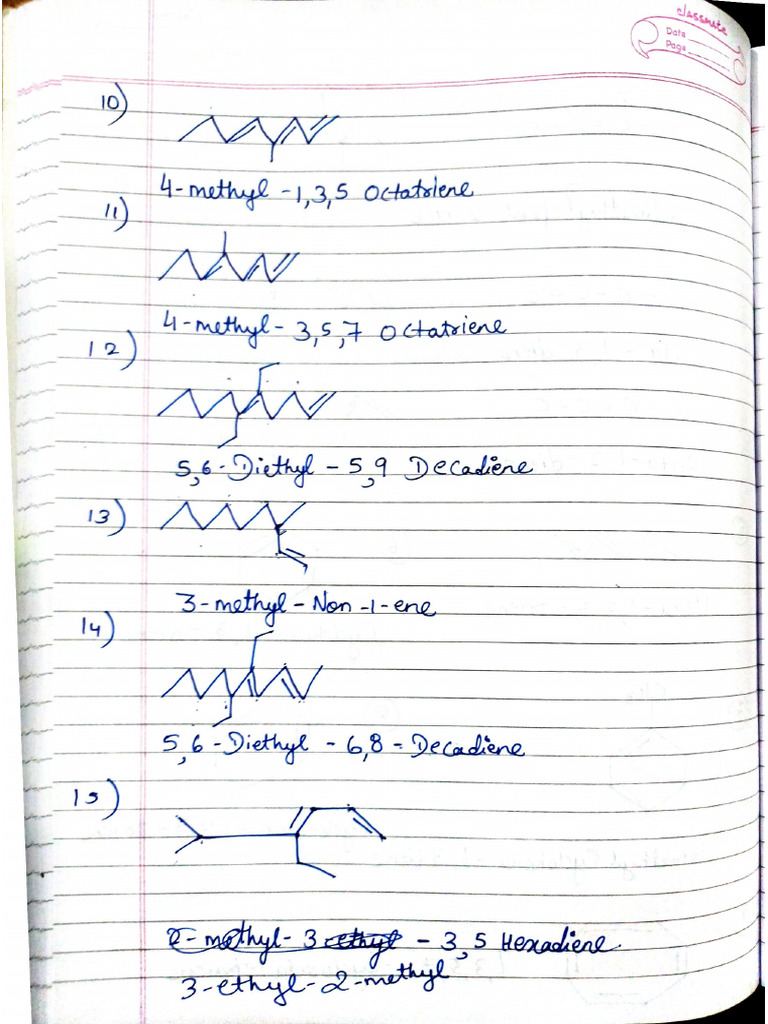 classmate
Date
Page
10)
4-methyl -1,3,5 Octatriene
11)
4-methyl- 3,5,7 Octatriene
12)
5,6-Diethyl - 5,9 Decadiene
13)
3-methyl-Non -1-ene
14)
5,6-Diethyl - 6,8 - Decadiene
15)
2-methyl- 3 ethyl - 3,5 Hexadiene.
3-ethyl-2-methyl